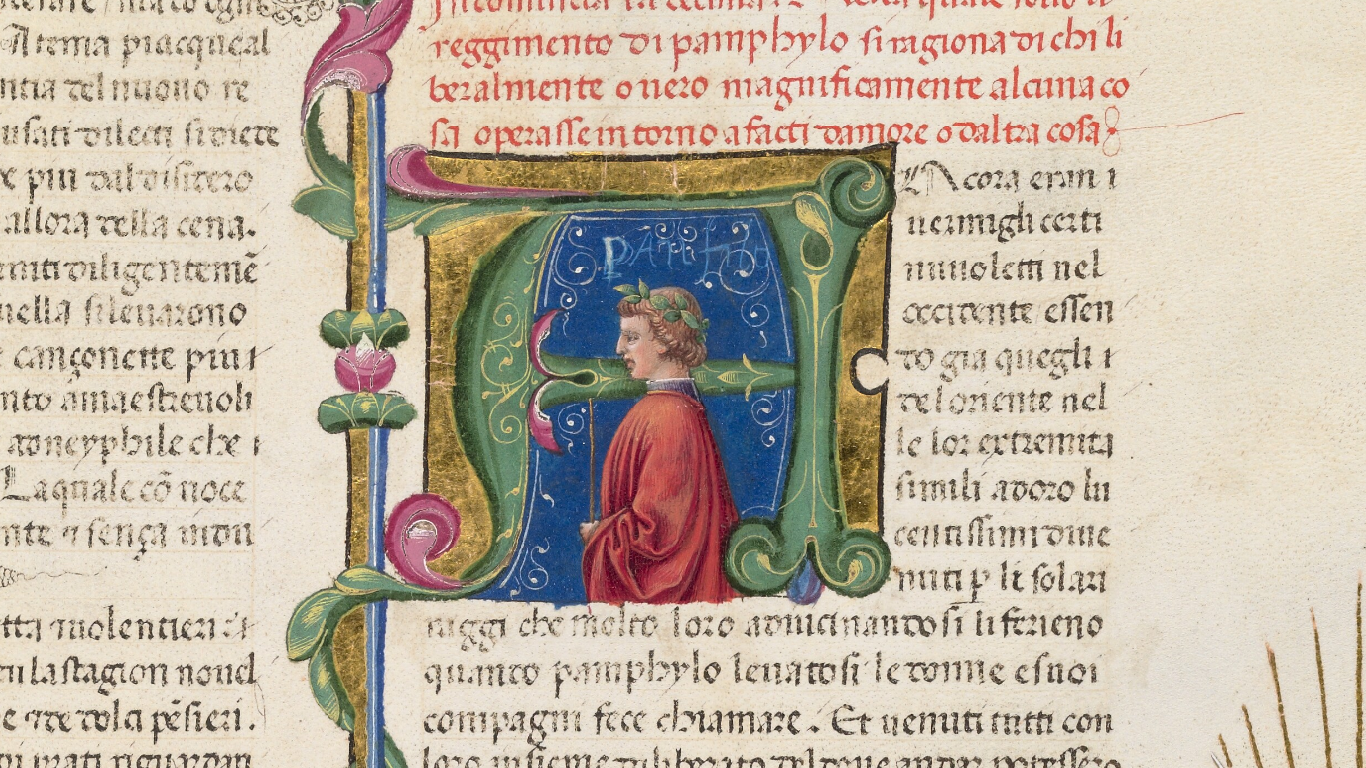 A tema piacque al
ntia del nuouo re
usati dilecti si diete
e piu dal disidero
allora della cena.
enti diligenteme̅
uella si leuarono
cançonette piu
nto amaestreuoli
a doneyphile che
La quale co̅ uoce
nte ⁊ sença indu
uolentieri
la stagion nouel
e dolci pe̅sieri.
reggimento di pamphylo si ragiona di chi li
beralmente o uero magnificamente alcuna co
sa operasse intorno a facti damore o daltra cosa
pamfilo
Ancora eran i
uermigli certi
nuuoletti nel
occidente essen
do gia quegli
del oriente nel
le lor extremita
simili adoro lu
centissimi diue
nuti p li solari
raggi che molto loro aduicinandosi li ferieno
quando pamphylo leuatosi le donne e suoi
compagni fece chiamare. Et uenuti tutti con
loro insieme diliberato del doue andar potessero